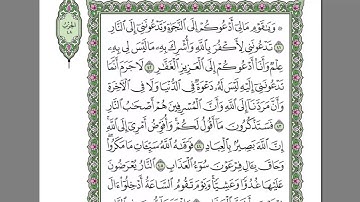 ۞ وَيَٰقَوۡمِ مَا لِيٓ أَدۡعُوكُمۡ إِلَى ٱلنَّجَوٰةِ وَتَدۡعُونَنِيٓ إِلَى ٱلنَّارِ
٤١ تَدۡعُونَنِي لِأَكۡفُرَ بِٱللَّهِ وَأُشۡرِكَ بِهِۦ مَا لَيۡسَ لِي بِهِۦ
عِلۡمٞ وَأَنَا۠ أَدۡعُوكُمۡ إِلَى ٱلۡعَزِيزِ ٱلۡغَفَّٰرِ ٤٢ لَا جَرَمَ أَنَّمَا
تَدۡعُونَنِيٓ إِلَيۡهِ لَيۡسَ لَهُۥ دَعۡوَةٞ فِي ٱلدُّنۡيَا وَلَا فِي ٱلۡأٓخِرَةِ
وَأَنَّ مَرَدَّنَآ إِلَى ٱللَّهِ وَأَنَّ ٱلۡمُسۡرِفِينَ هُمۡ أَصۡحَٰبُ ٱلنَّارِ
٤٣ فَسَتَذۡكُرُونَ مَآ أَقُولُ لَكُمۡۚ وَأُفَوِّضُ أَمۡرِيٓ إِلَى ٱللَّهِۚ
إِنَّ ٱللَّهَ بَصِيرُۢ بِٱلۡعِبَادِ ٤٤ فَوَقَىٰهُ ٱللَّهُ سَيِّـَٔاتِ مَا مَكَرُواْۖ
وَحَاقَ بِـَٔالِ فِرۡعَوۡنَ سُوٓءُ ٱلۡعَذَابِ ٤٥ ٱلنَّارُ يُعۡرَضُونَ
عَلَيۡهَا غُدُوّٗا وَعَشِيّٗاۚ وَيَوۡمَ تَقُومُ ٱلسَّاعَةُ أَدۡخِلُوٓاْ ءَالَ